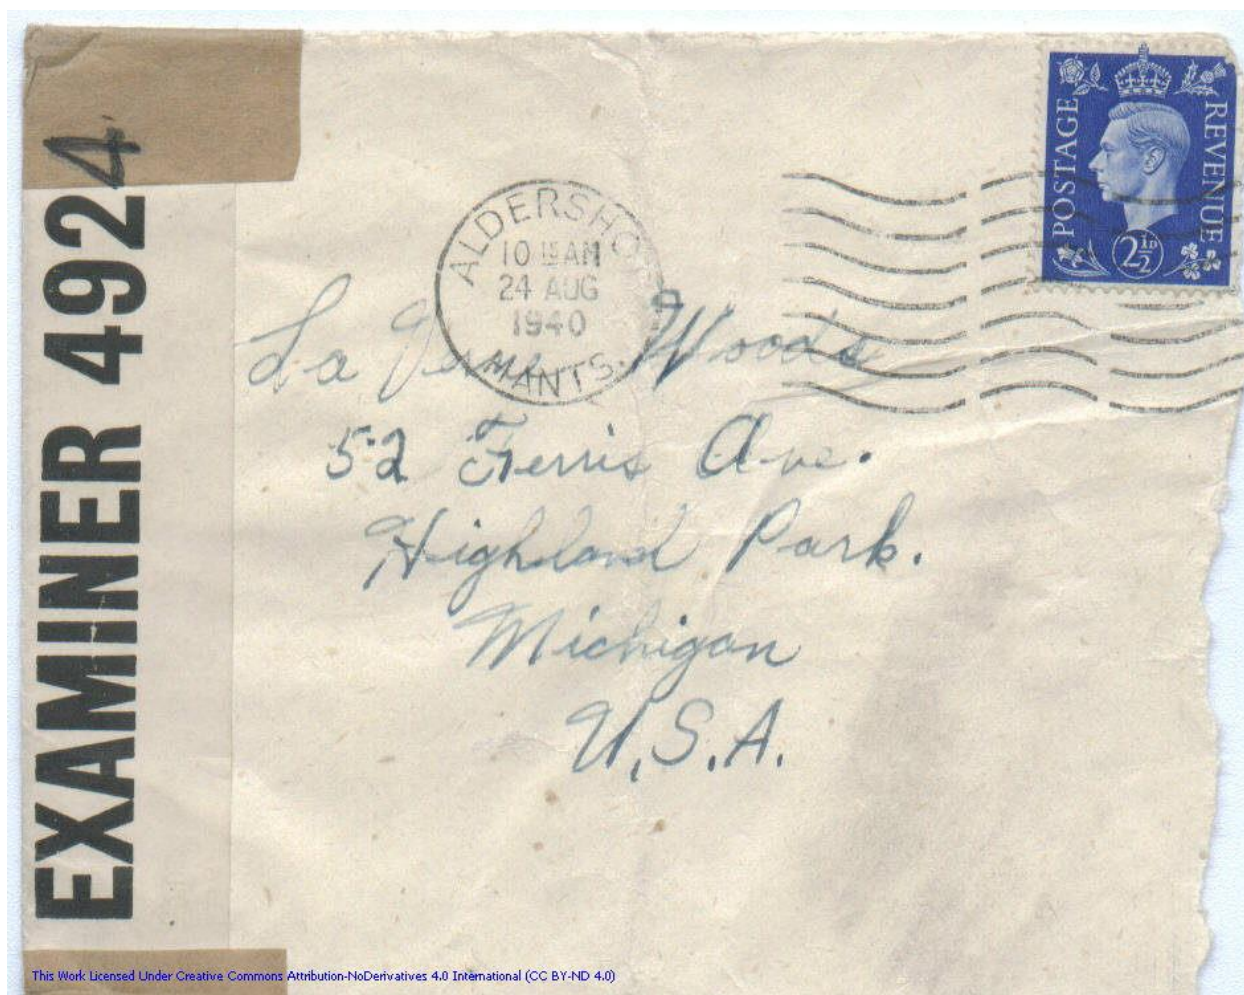 EXAMINER 4924
POSTAGE
REVENUE
2½D
ALDERSHOT
10 15 AM
24 AUG
1940
HANTS.
La Verne Woods
52 Ferris Ave.
Highland Park.
Michigan
U.S.A.
This Work Licensed Under Creative Commons Attribution-NoDerivatives 4.0 International (CC BY-ND 4.0)